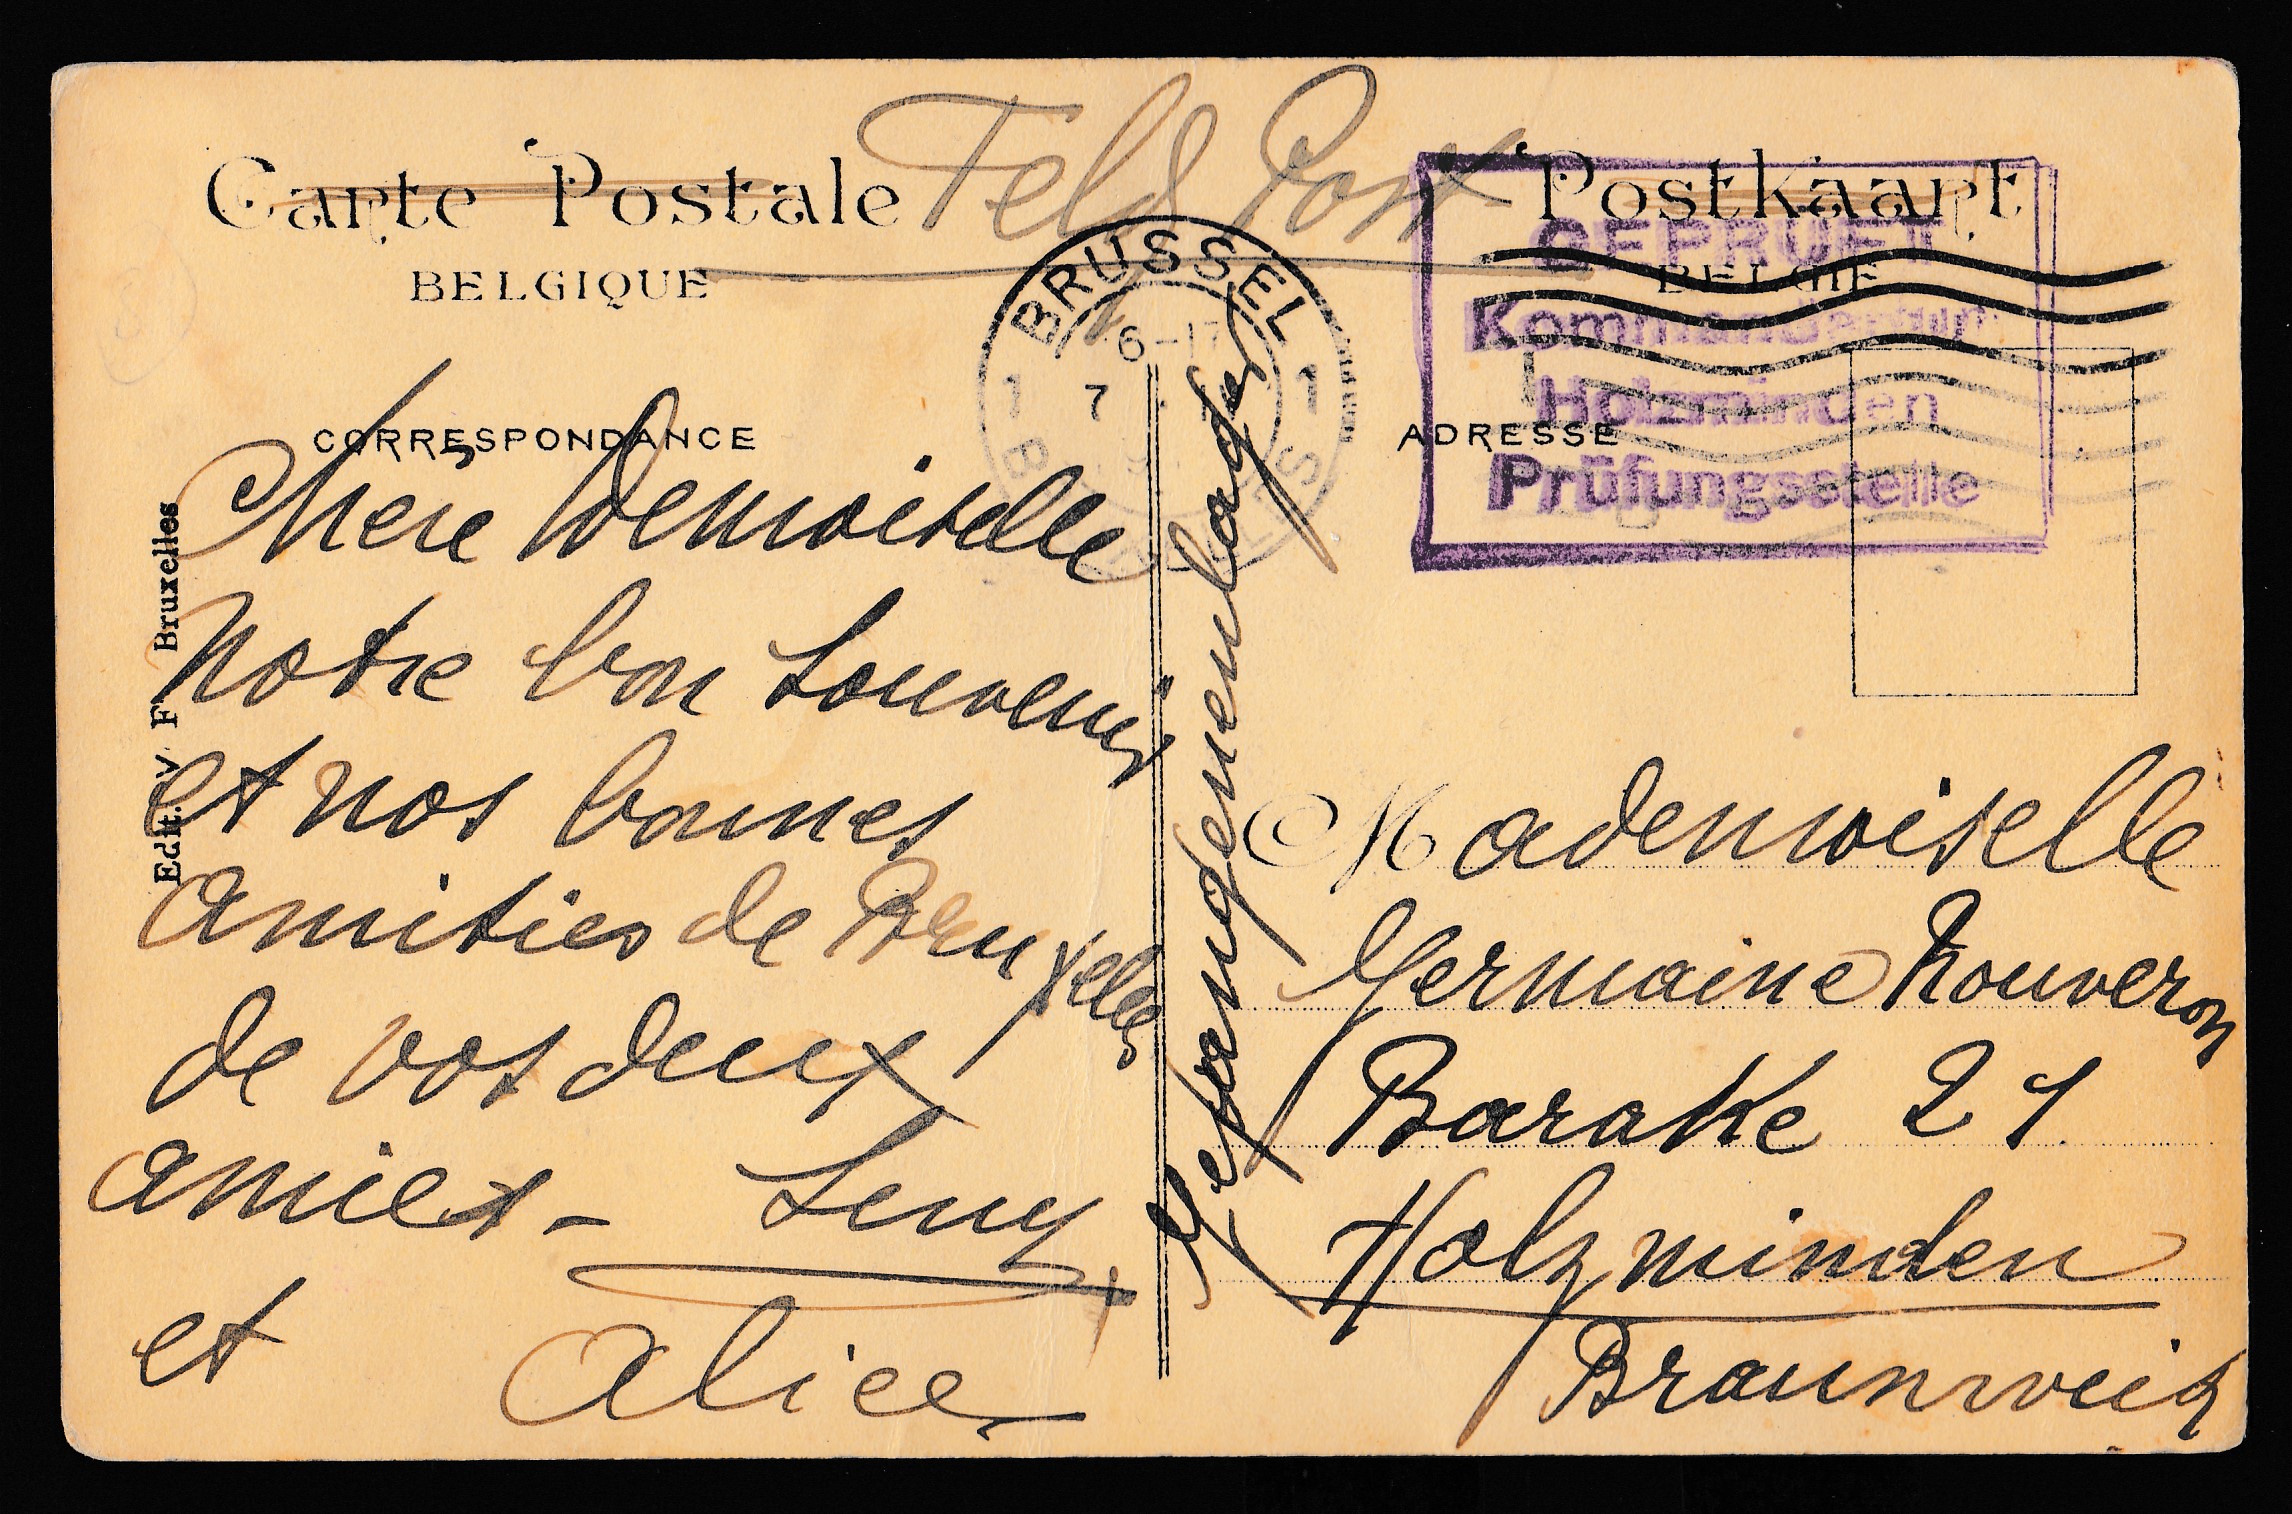 Carte Postale
Feld Post
Postkaart
BELGIQUE
BELGIE
GEPRÜFT
Kommandantur
Holzminden
Prüfungsstelle
BRUSSEL
1 7 1
CORRESPONDANCE
ADRESSE
Edit. V F Bruxelles
Chère Demoiselle
Notre bon Souvenir
et nos bonnes
Amitiés de Bruxelles
de vos deux
amies -
et Alice
Gefangenenlager
Mademoiselle
Germaine Nouveron
Barakke 21
Holzminden
Braunweig